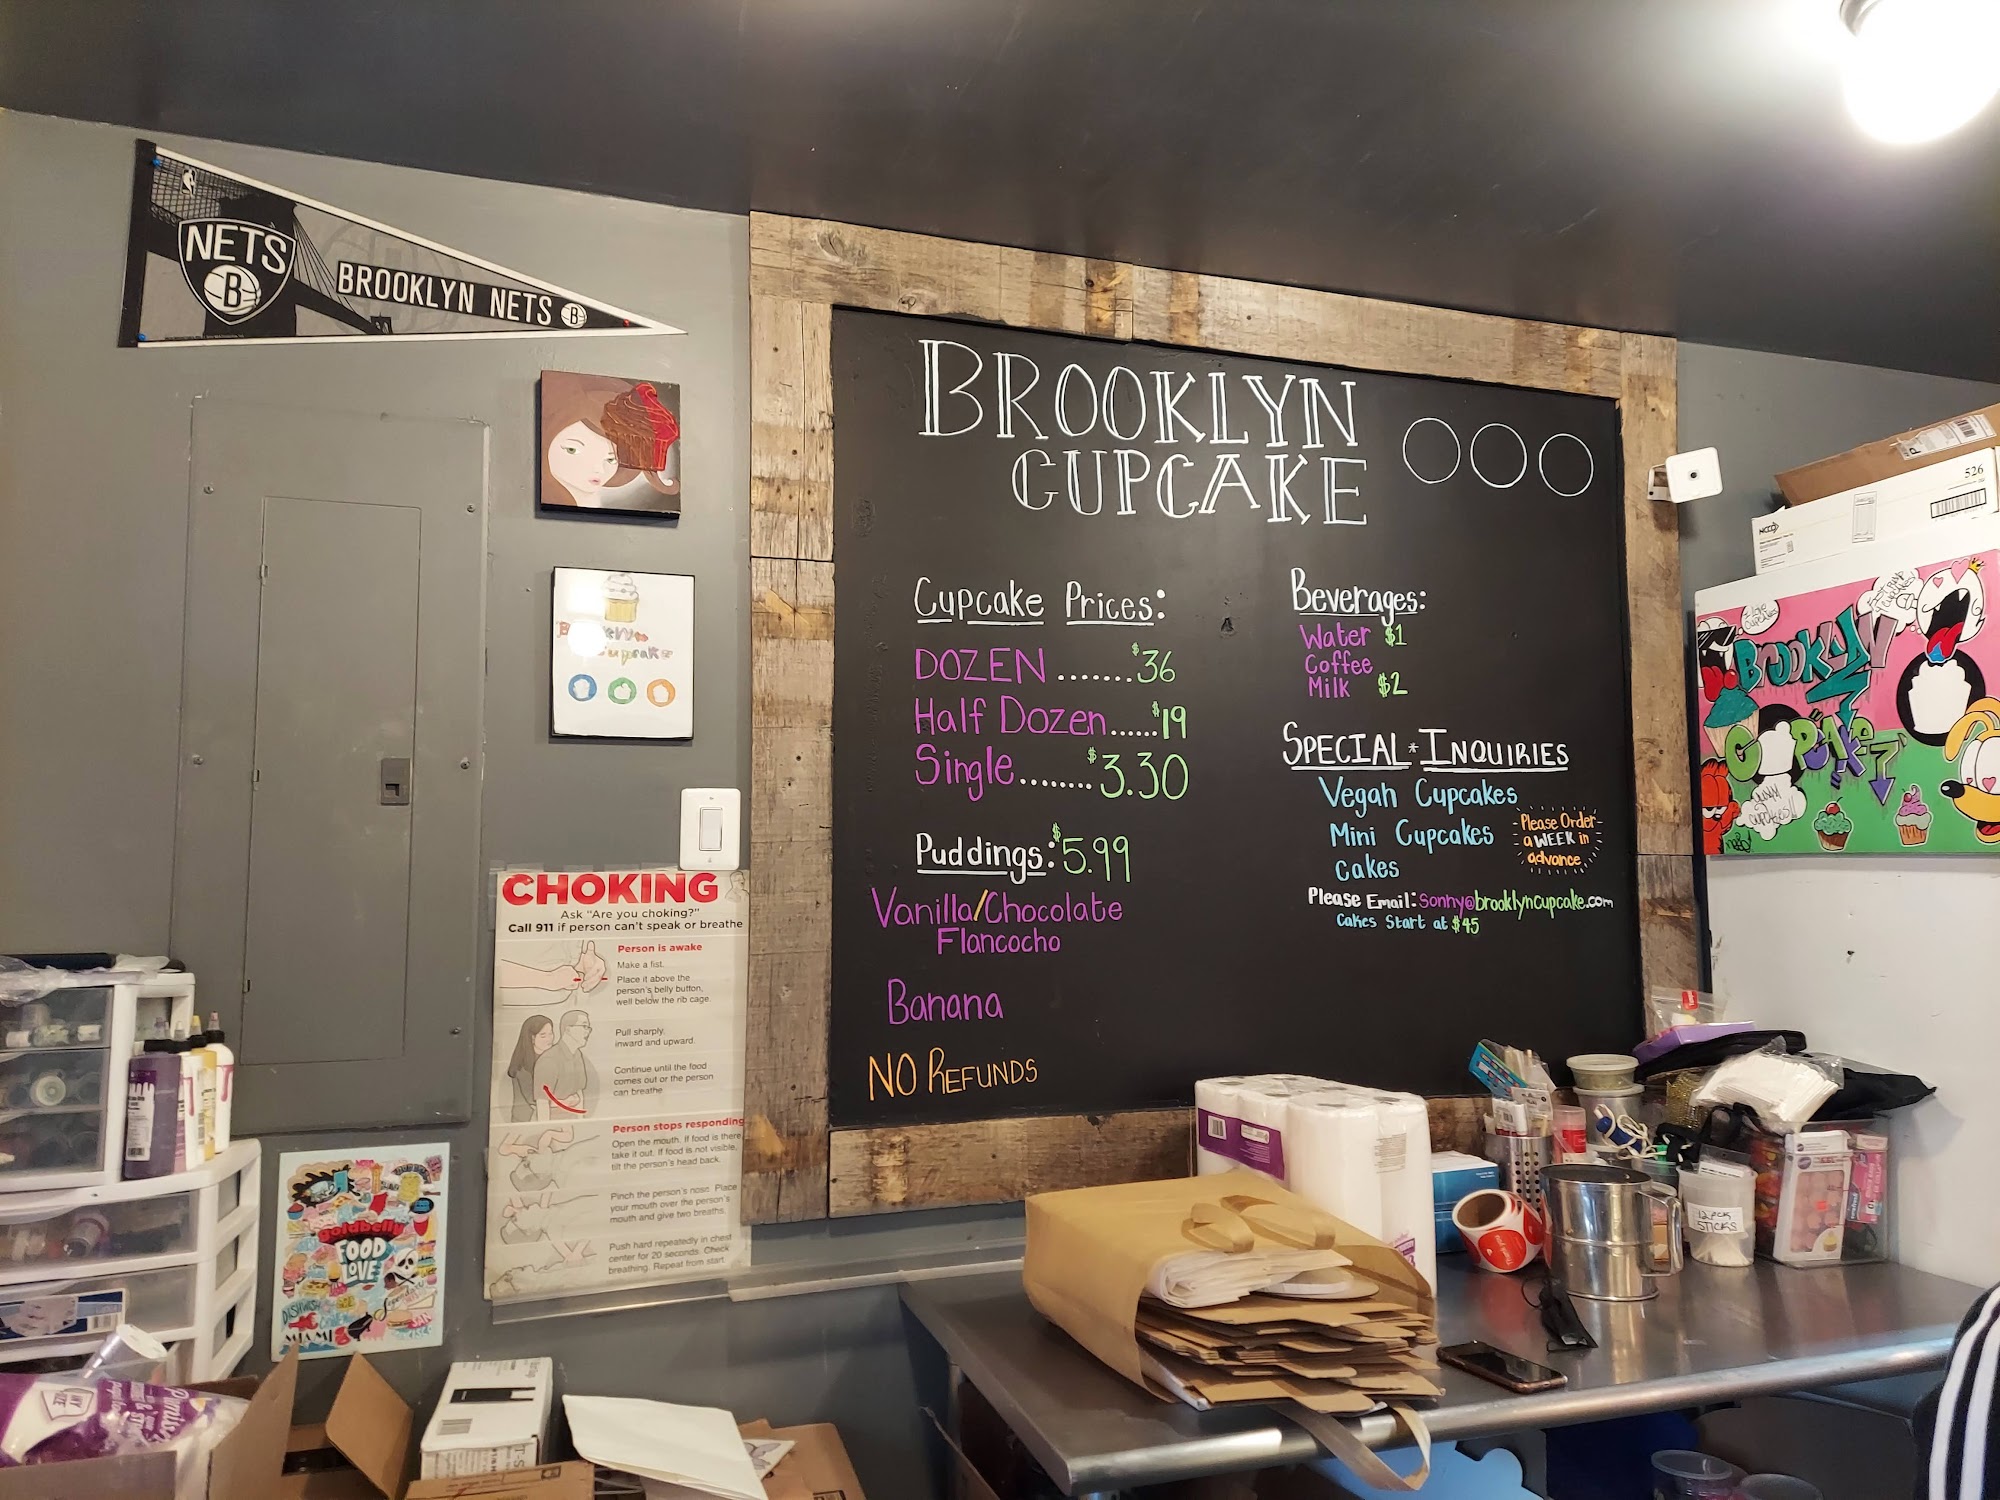 NETS
B
BROOKLYN NETS B
BROOKLYN
CUPCAKE
Cupcake Prices:
DOZEN .......$36
Half Dozen......$19
Single........$3.30
Puddings: $5.99
Vanilla/Chocolate
Flancocho
Banana
NO REFUNDS
Beverages:
Water $1
Coffee
Milk $2
SPECIAL * INQUIRIES
Vegan Cupcakes
Mini Cupcakes
Cakes
Please Order
a WEEK in
advance
Please Email: Sonny@brooklyncupcake.com
Cakes Start at $45
CHOKING
Ask "Are you choking?"
Call 911 if person can't speak or breathe
Person is awake
Make a fist.
Place it above the
person's belly button,
well below the rib cage.
Pull sharply,
inward and upward.
Continue until the food
comes out or the person
can breathe
Person stops responding
Open the mouth. If food is there
take it out. If food is not visible,
tilt the person's head back.
Pinch the person's nose. Place
your mouth over the person's
mouth and give two breaths.
Push hard repeatedly in chest
center for 20 seconds. Check
breathing. Repeat from start.
goldbelly
FOOD
LOVE
MIAMI
526
I love
cupcakes
BROOKLYN
CUPCAKE
12 PCK
STICKS